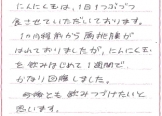 にんにく玉は、1日1つぶづつ
食させていただいております。
1か月程前から両地膝が
はれておりましたが、にんにく玉
を飲みはじめて1週間で
かなり回復しました。
今後とも飲みつづけたいと
思います。